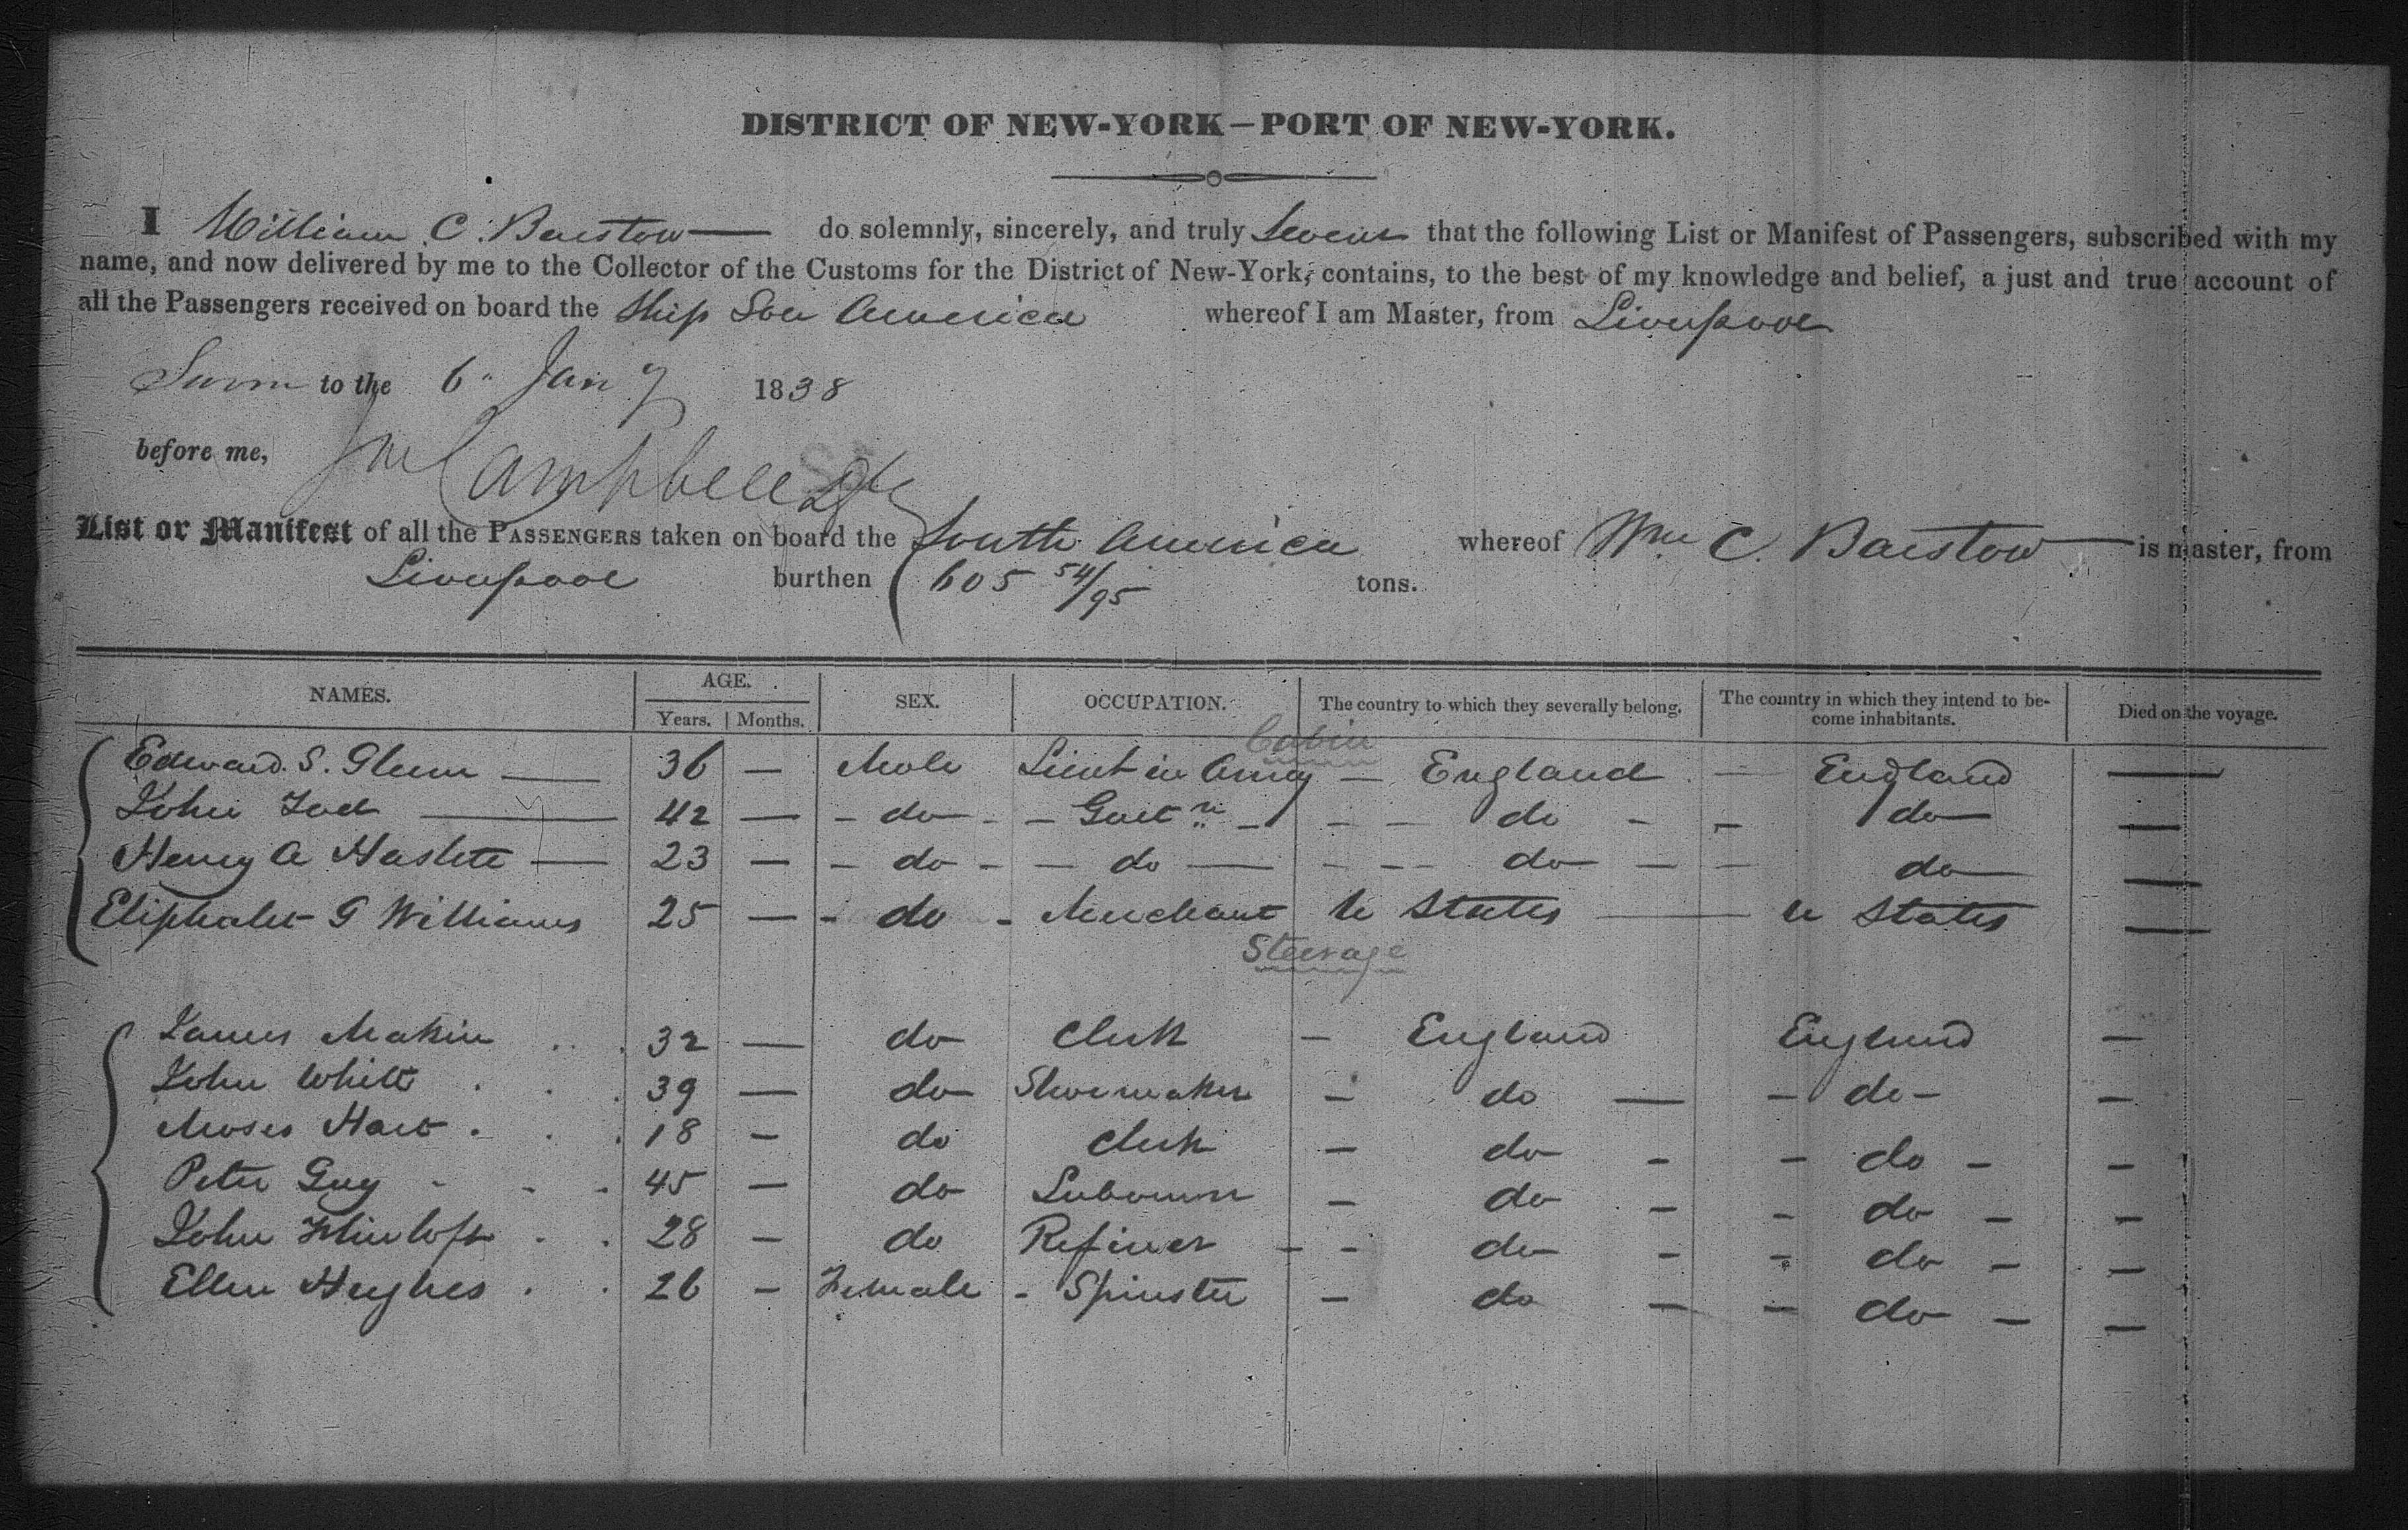 DISTRICT OF NEW-YORK—PORT OF NEW-YORK.
I William C. Barstow do solemnly, sincerely, and truly Swear that the following List or Manifest of Passengers, subscribed with my
name, and now delivered by me to the Collector of the Customs for the District of New-York, contains, to the best of my knowledge and belief, a just and true account of
all the Passengers received on board the Ship Sou America whereof I am Master, from Liverpool
Sworn to the 6" Jany 1838
before me, Campbell
List or Manifest of all the PASSENGERS taken on board the South America whereof Wm C. Barstow is master, from
Liverpool burthen 605 54/95 tons.
NAMES. AGE. SEX. OCCUPATION. The country to which they severally belong. The country in which they intend to be-
Years. Months. come inhabitants. Died on the voyage.
Cabin
Edward. S. Glenn 36 — Male Lieut in Army — England — England —
John Tod 42 — do Gent n do do —
Henry A 23 — do do do do —
Eliphalet G Williams 25 — do Merchant U States U States —
Steerage
James Makin 32 — do Clerk — England England —
John White 39 — do Shoemaker — do — do —
Moses Hart 18 — do Clerk — do - do —
Peter Guy 45 — do Labourer — do - do —
John 28 — do Refiner - do - do —
Ellen Hughes 26 — Female Spinster — do — do —